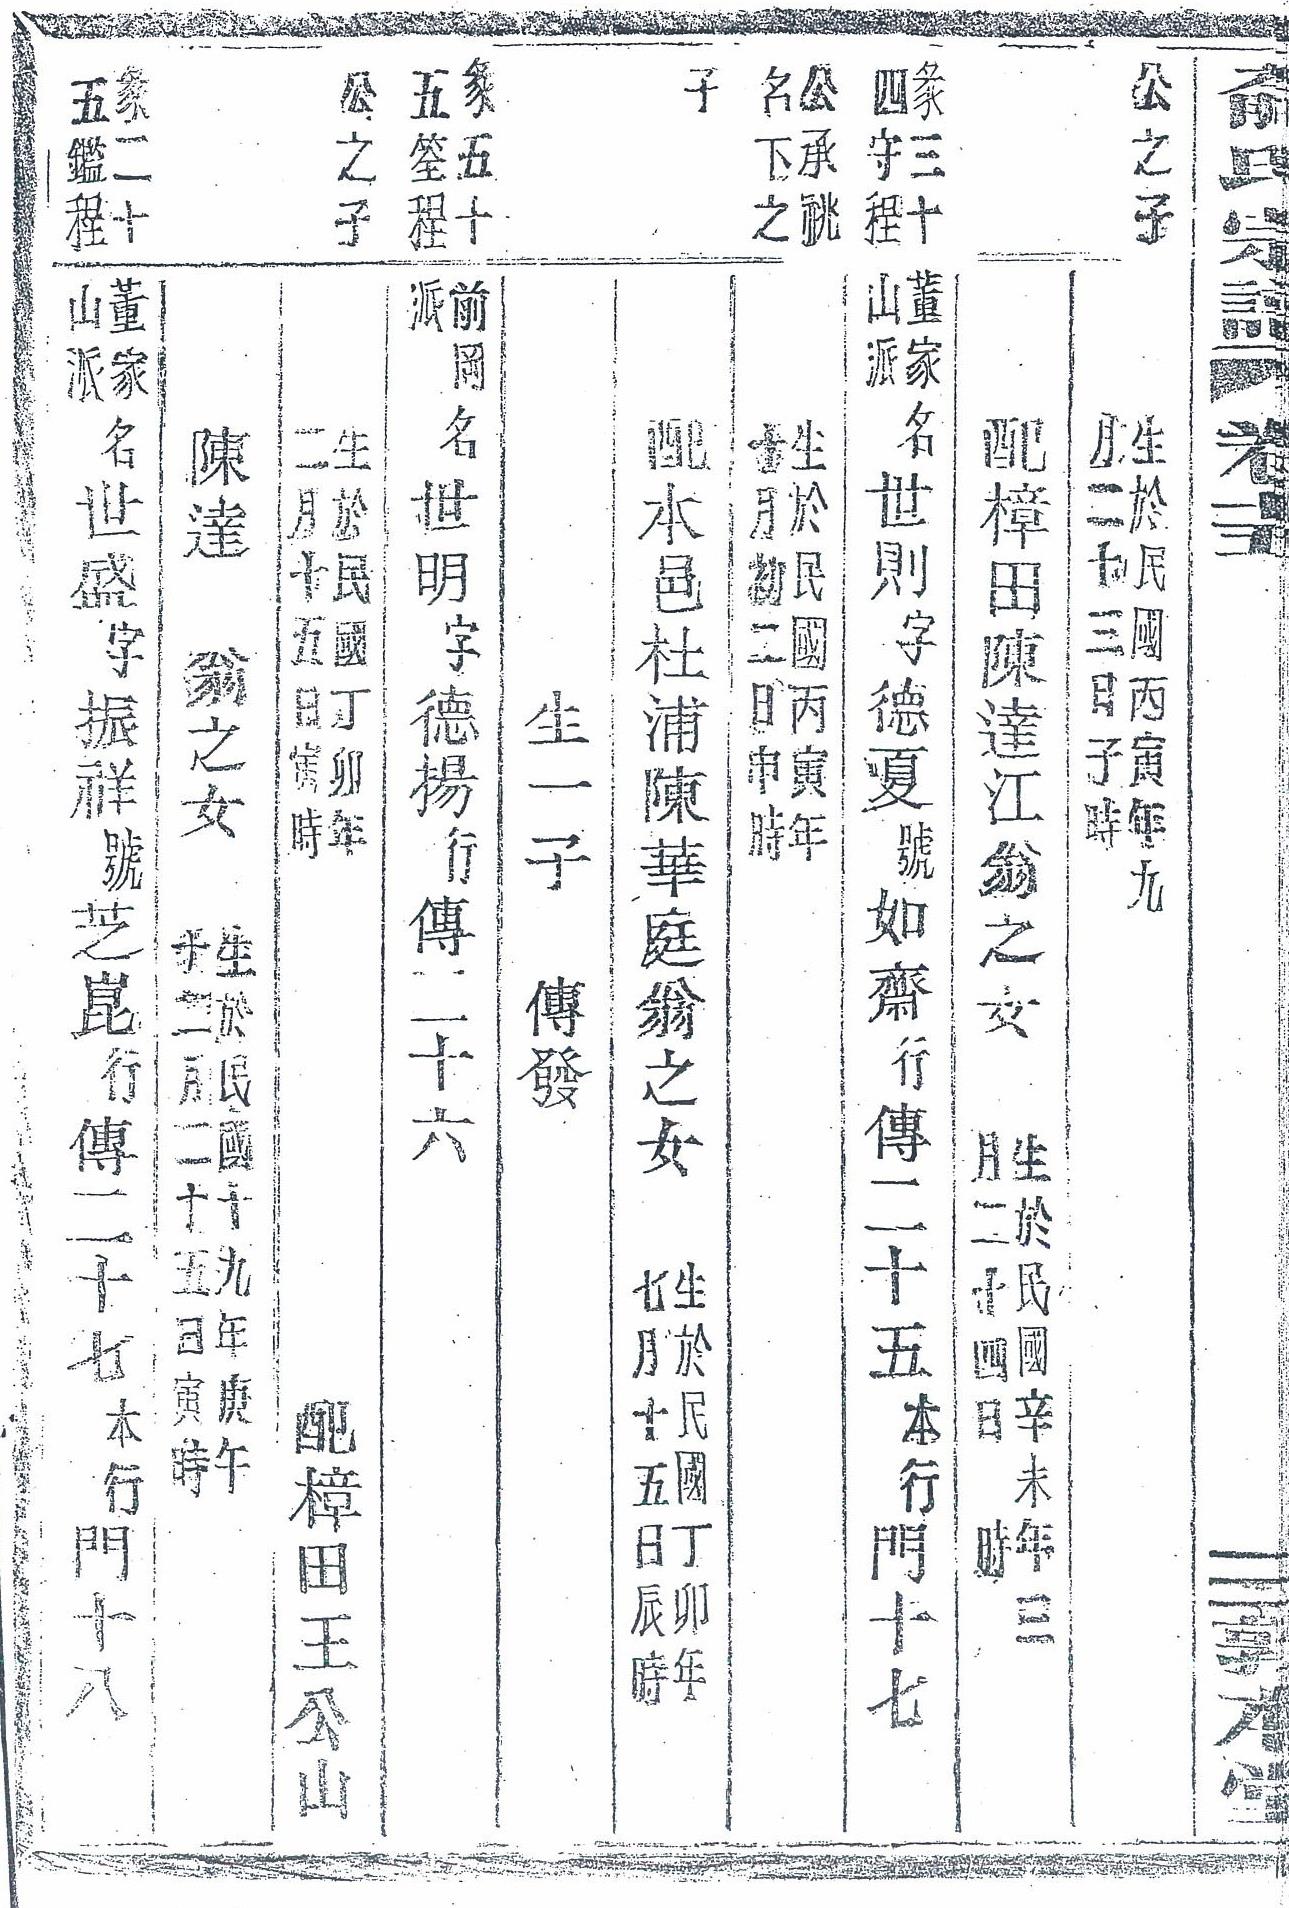 俞氏宗譜 卷三 敦本堂
公之子
生於民國丙寅年九
月二十三日子時
配樟田陳達江翁之女 生於民國辛未年三
月二十四日 時
彖三十
四守程
董家
山派
名世則字德夏號如齋行傳二十五本行門十七
公承祧
名下之
生於民國丙寅年
十月初二日申時
子
配本邑杜浦陳華庭翁之女 生於民國丁卯年
七月十五日辰時
生一子 傳發
彖五十
五筌程
前岡
派
名世明字德揚行傳二十六
公之子
生於民國丁卯年
二月十五日寅時
配樟田王公山
陳達 翁之女 生於民國十九年庚午
十二月二十五日寅時
彖二十
五鑑程
董家
山派
名世盛字振祥號芝崑行傳二十七本行門十八